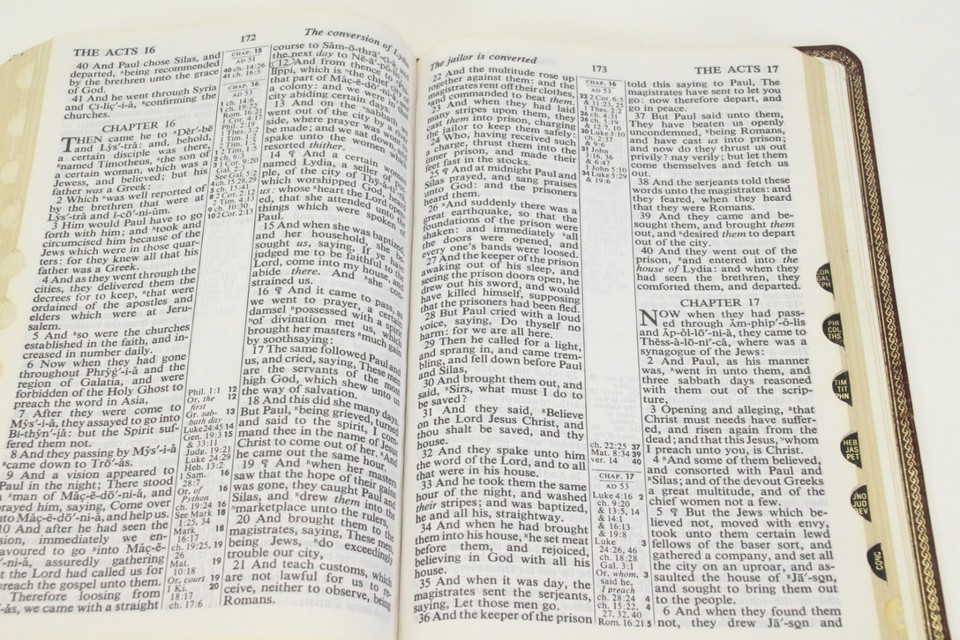 THE ACTS 16
172
The conversion of
40 And Paul chose Silas, and
departed, being recommended
by the brethren unto the grace
of God.
41 And he went through Syria
and Çĭ-lĭç´-ĭ-ȧ, confirming the
churches.
CHAPTER 16
THEN came he to Dẽr´-bē
and Lўs´-trȧ: and, behold,
a certain disciple was there,
named Timotheus, the son of
a certain woman, which was a
Jewess, and believed; but his
father was a Greek:
2 Which was well reported of
by the brethren that were at
Lўs´-trȧ and I-cō´-nĭ-ŭm.
3 Him would Paul have to go
forth with him; and took and
circumcised him because of the
Jews which were in those quar-
ters: for they knew all that his
father was a Greek.
4 And as they went through the
cities, they delivered them the
decrees for to keep, that were
ordained of the apostles and
elders which were at Jeru-
salem.
5 And so were the churches
established in the faith, and in-
creased in number daily.
6 Now when they had gone
throughout Phrўġ´-ĭ-ȧ and the
region of Galatia, and were
forbidden of the Holy Ghost to
preach the word in Asia,
7 After they were come to
Mўs´-ĭ-ȧ, they assayed to go into
Bĭ-thўn´-ĭȧ: but the Spirit suf-
fered them not.
8 And they passing by Mўs´-ĭ-ȧ
came down to Trō´-ăs.
9 And a vision appeared to
Paul in the night; There stood
a man of Măç-ē-dō´-nĭ-ȧ, and
prayed him, saying, Come over
into Măç-ē-dō´-nĭ-ȧ, and help us.
10 And after he had seen the
vision, immediately we en-
avoured to go into Măç-ē-
´-nĭ-ȧ, assuredly gathering
t the Lord had called us for
preach the gospel unto them.
Therefore loosing from
´-ăs, we came with a straight
CHAP. 15
AD 51
40 ch. 14:26
41 ch. 16:5
CHAP. 16
AD 53
Phil. 1:1 12
Or, the 12
first
Gr. sab- 13
bath day
Luke 24:45 14
Gen. 19:3 15
& 33:11
Judg. 19:21
Luke 24:29
Heb. 13:2
1 Sam. 16
28:7
Or, of 16
Python
ch. 19:24 16
See Mark 18
1:25, 34
Mark 18
16:17
ch. 19:25, 19
26
Mat. 19
10:18
Or, court 19
1 Ki. 20
18:17
ch. 17:6
course to Săm-ŏ-thrā´-çĭ-ȧ,
the next day to Nē-ă´-pŏ-
12 And from thence to
lippi, which is the chief
that part of Măç-ē-dō´-nĭ-
a colony: and we were in
city abiding certain days.
13 And on the sabbath
went out of the city by
side, where prayer was wont
be made; and we sat down,
spake unto the women
resorted thither.
14 ¶ And a certain woman
named Lydia, a seller of
ple, of the city of Thў-ȧ-tī´-
which worshipped God, heard
us: whose heart the Lord open-
ed, that she attended unto
things which were spoken of
Paul.
15 And when she was baptized,
and her household, she be-
sought us, saying, If ye have
judged me to be faithful to the
Lord, come into my house, and
abide there. And she con-
strained us.
16 ¶ And it came to pass, as
we went to prayer, a certain
damsel possessed with a spirit
of divination met us, which
brought her masters much gain
by soothsaying:
17 The same followed Paul and
us, and cried, saying, These men
are the servants of the most
high God, which shew unto us
the way of salvation.
18 And this did she many days.
But Paul, being grieved, turned
and said to the spirit, I com-
mand thee in the name of Jesus
Christ to come out of her. And
he came out the same hour.
19 ¶ And when her masters
saw that the hope of their gains
was gone, they caught Paul and
Silas, and drew them into the
marketplace unto the rulers,
20 And brought them to the
magistrates, saying, These men,
being Jews, do exceedingly
trouble our city,
21 And teach customs, which
are not lawful for us to re-
ceive, neither to observe, being
Romans.
The jailor is converted
173
THE ACTS 17
22 And the multitude rose up
together against them: and the
magistrates rent off their clothes,
and commanded to beat them.
23 And when they had laid
many stripes upon them, they
cast them into prison, charging
the jailor to keep them safely:
24 Who, having received such
a charge, thrust them into the
inner prison, and made their
feet fast in the stocks.
25 ¶ And at midnight Paul and
Silas prayed, and sang praises
unto God: and the prisoners
heard them.
26 And suddenly there was a
great earthquake, so that the
foundations of the prison were
shaken: and immediately all
the doors were opened, and
every one's bands were loosed.
27 And the keeper of the prison
awaking out of his sleep, and
seeing the prison doors open, he
drew out his sword, and would
have killed himself, supposing
that the prisoners had been fled.
28 But Paul cried with a loud
voice, saying, Do thyself no
harm: for we are all here.
29 Then he called for a light,
and sprang in, and came trem-
bling, and fell down before Paul
and Silas,
30 And brought them out, and
said, Sirs, what must I do to
be saved?
31 And they said, Believe
on the Lord Jesus Christ, and
thou shalt be saved, and thy
house.
32 And they spake unto him
the word of the Lord, and to all
that were in his house.
33 And he took them the same
hour of the night, and washed
their stripes; and was baptized,
he and all his, straightway.
34 And when he had brought
them into his house, he set meat
before them, and rejoiced,
believing in God with all his
house.
35 And when it was day, the
magistrates sent the serjeants,
saying, Let those men go.
36 And the keeper of the prison
CHAP. 16
AD 53
22 2 Cor. 6:5
& 11:23, 25
1 Thess. 2:2
26 ch. 4:31
26 ch. 5:19
& 12:7, 10
30 Luke 3:10
ch. 2:37
& 9:6
31 John
3:16, 36
& 6:47
1 John 5:10
34 Luke 5:29
& 19:6
ch. 22:25 37
Mat. 8:34 39
ver. 14 40
CHAP. 17
AD 53
Luke 4:16 2
ch. 9:20
& 13:5, 14
& 14:1
& 16:13
& 19:8
Luke 3
24:26, 46
ch. 18:28
Gal. 3:1
Or, whom. 3
said he,
I preach
ch. 28:24 4
ch. 15:22, 4
27, 32, 40
Rom. 16:21 5
told this saying to Paul, The
magistrates have sent to let you
go: now therefore depart, and
go in peace.
37 But Paul said unto them,
They have beaten us openly
uncondemned, being Romans,
and have cast us into prison;
and now do they thrust us out
privily? nay verily; but let them
come themselves and fetch us
out.
38 And the serjeants told these
words unto the magistrates: and
they feared, when they heard
that they were Romans.
39 And they came and be-
sought them, and brought them
out, and desired them to depart
out of the city.
40 And they went out of the
prison, and entered into the
house of Lydia: and when they
had seen the brethren, they
comforted them, and departed.
CHAPTER 17
NOW when they had pass-
ed through Ăm-phĭp´-ŏ-lĭs
and Ăp-ŏl-lō´-nĭ-ȧ, they came to
Thĕss-ȧ-lō-nī´-cȧ, where was a
synagogue of the Jews:
2 And Paul, as his manner
was, went in unto them, and
three sabbath days reasoned
with them out of the scrip-
ture,
3 Opening and alleging, that
Christ must needs have suffer-
ed, and risen again from the
dead; and that this Jesus, whom
I preach unto you, is Christ.
4 And some of them believed,
and consorted with Paul and
Silas; and of the devout Greeks
a great multitude, and of the
chief women not a few.
5 ¶ But the Jews which be-
lieved not, moved with envy,
took unto them certain lewd
fellows of the baser sort, and
gathered a company, and set all
the city on an uproar, and as-
saulted the house of Jā´-sọn,
and sought to bring them out
to the people.
6 And when they found them
not, they drew Jā´-sọn and
COR
GAL
PH
PHI
COL
THS
TIM
TIT
PHN
HEB
JAS
PET
JNO
JUD
REV
CONC